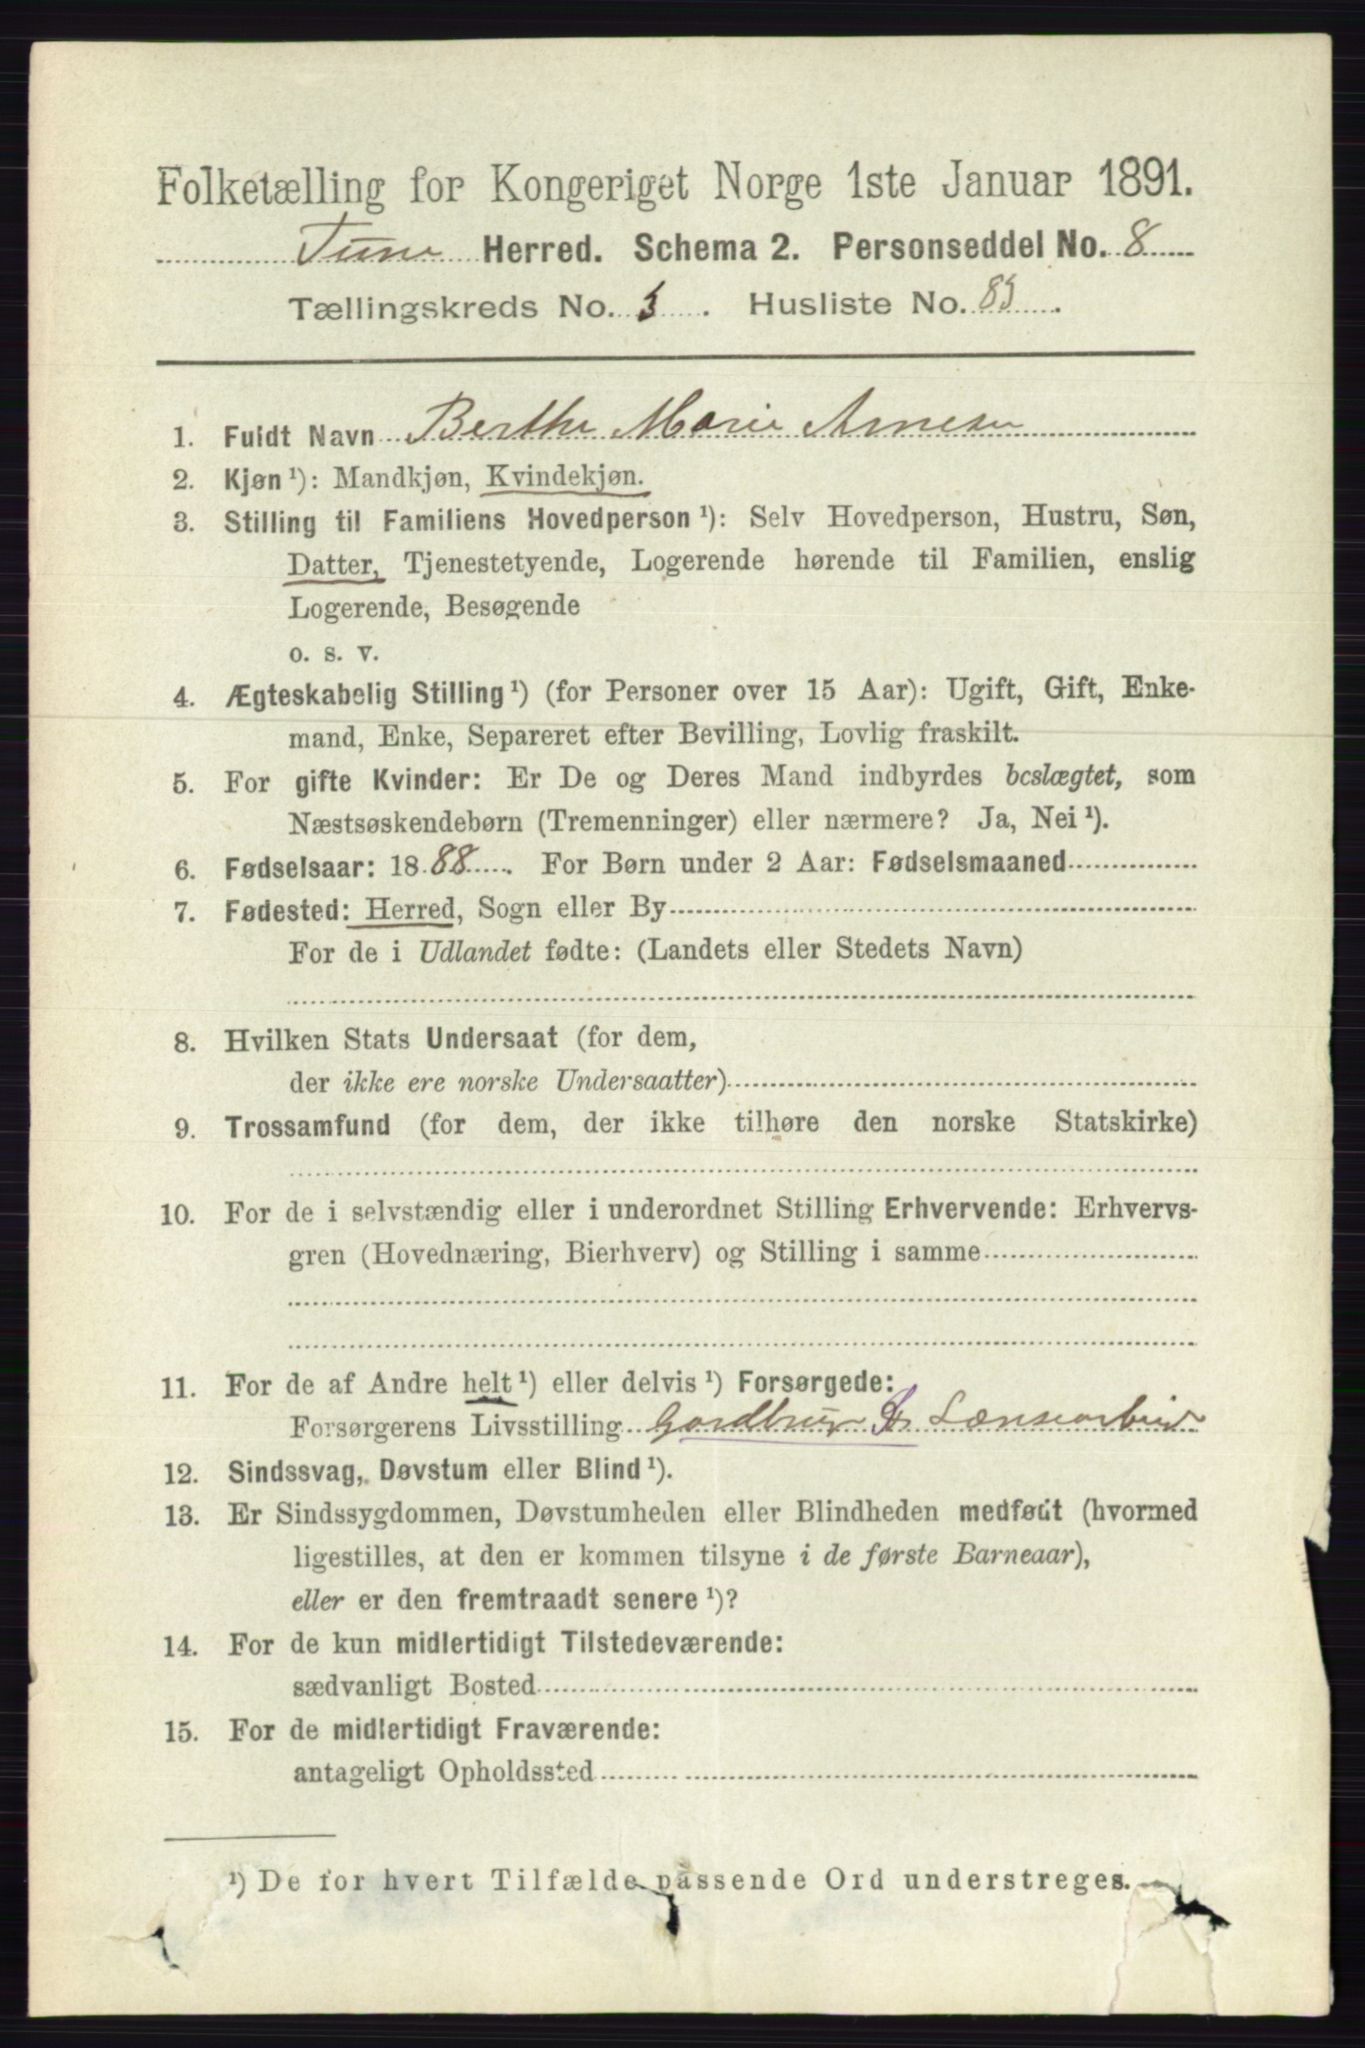 Folketælling for Kongeriget Norge 1ste Januar 1891.
Tune Herred. Schema 2. Personseddel No. 8
Tællingskreds No. 5. Husliste No. 85.
1. Fuldt Navn Berthe Marie Arnesen
2. Kjøn ¹): Mandkjøn, Kvindekjøn.
3. Stilling til Familiens Hovedperson ¹): Selv Hovedperson, Hustru, Søn,
Datter, Tjenestetyende, Logerende hørende til Familien, enslig
Logerende, Besøgende
o. s. v.
4. Ægteskabelig Stilling ¹) (for Personer over 15 Aar): Ugift, Gift, Enke-
mand, Enke, Separeret efter Bevilling, Lovlig fraskilt.
5. For gifte Kvinder: Er De og Deres Mand indbyrdes beslægtet, som
Næstsøskendebørn (Tremenninger) eller nærmere? Ja, Nei ¹).
6. Fødselsaar: 1888. For Børn under 2 Aar: Fødselsmaaned
7. Fødested: Herred, Sogn eller By
For de i Udlandet fødte: (Landets eller Stedets Navn)
8. Hvilken Stats Undersaat (for dem,
der ikke ere norske Undersaatter)
9. Trossamfund (for dem, der ikke tilhøre den norske Statskirke)
10. For de i selvstændig eller i underordnet Stilling Erhvervende: Erhvervs-
gren (Hovednæring, Bierhverv) og Stilling i samme
11. For de af Andre helt ¹) eller delvis ¹) Forsørgede:
Forsørgerens Livsstilling Gardbrug Lænsearbeid
12. Sindssvag, Døvstum eller Blind ¹).
13. Er Sindssygdommen, Døvstumheden eller Blindheden medfødt (hvormed
ligestilles, at den er kommen tilsyne i de første Barneaar),
eller er den fremtraadt senere ¹)?
14. For de kun midlertidigt Tilstedeværende:
sædvanligt Bosted
15. For de midlertidigt Fraværende:
antageligt Opholdssted
¹) De for hvert Tilfælde passende Ord understreges.